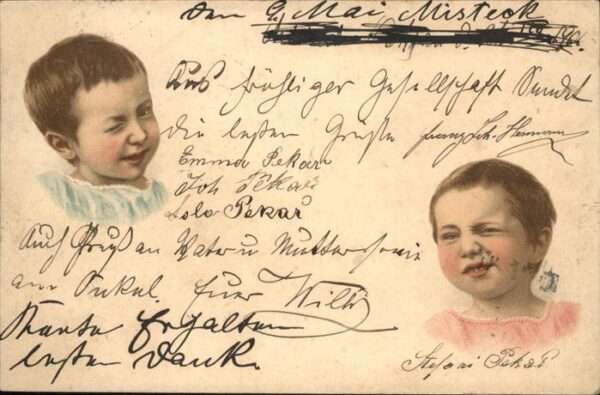 den 9. Mai Misteck
Aus fröhliger Gesellschaft Sendet
die besten Grüße
Emma Pekar
Joh Pekař
Lolo Pekař
Auch Gruß an Vater u Mutter sowie
an Onkel. Euer Willi
Karte Erhalten
besten Dank.
Stefani Pekař